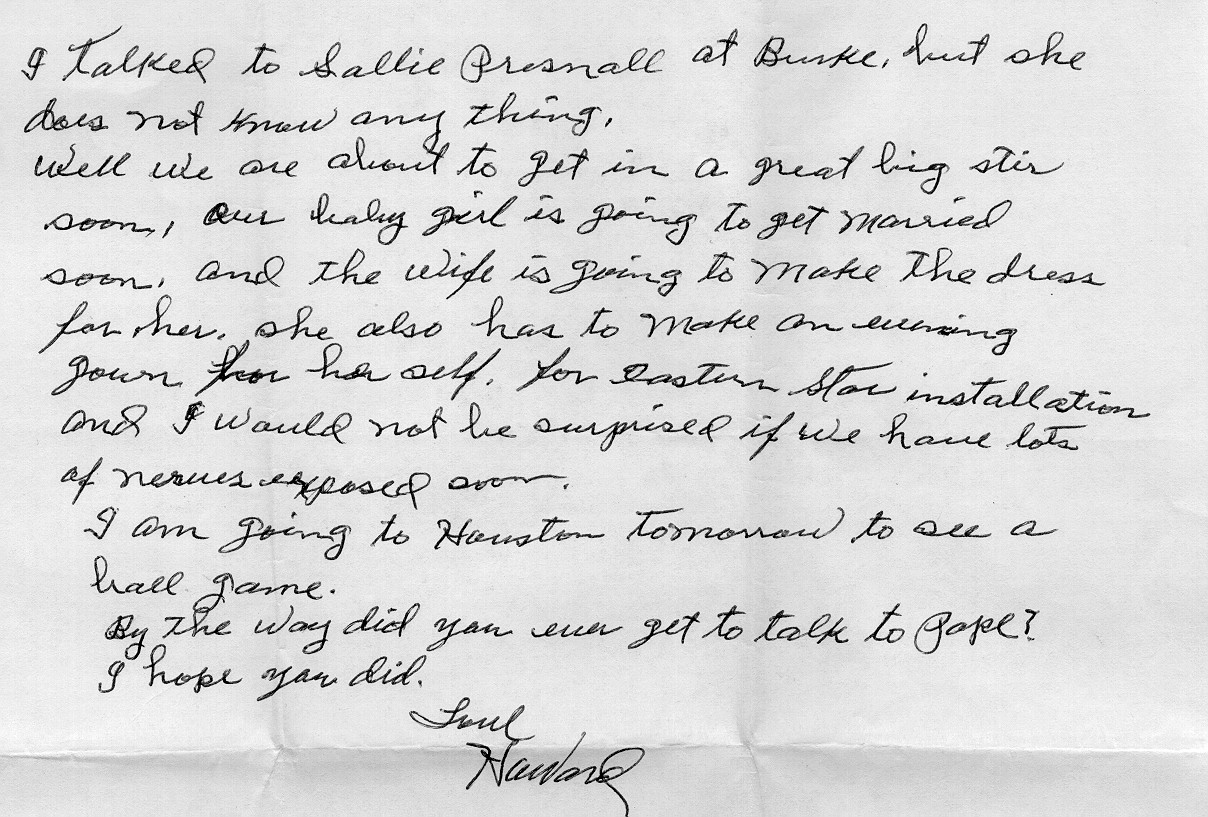 I talked to Sallie Presnall at Burke, but she
does not know any thing.
Well we are about to get in a great big stir
soon, our baby girl is going to get married
soon. and the wife is going to make the dress
for her. she also has to make an evening
gown for her self. for eastern star installation
and I would not be surprised if we have lots
of nerves exposed soon.
I am going to Houston tomorrow to see a
ball game.
By the way did you ever get to talk to Pope?
I hope you did.
Love
Howard